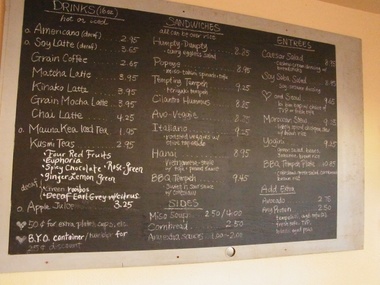 DRINKS (16oz)
hot or iced
Americano (decaf) 2.95
Soy Latte (decaf) 3.65
Grain Coffee 2.65
Matcha Latte 3.95
Kinako Latte 3.95
Grain Mocha Latte 3.95
Chai Latte 4.25
Mauna Kea Iced Tea 1.95
Kusmi Teas 2.95
Four Red Fruits
Euphoria
Spicy Chocolate
Rose Green
Ginger Lemon Green
decaf
Green rooibos
Decaf Earl Grey w/citrus
Apple Juice 3.25
50¢ for extra plates, cups, etc.
B.Y.O. container/ for
25¢ discount
SANDWICHES
all can be over rice
Humpty Dumpty 8.25
curry eggless salad
Popeye 8.95
miso-tahini spinach-tofu
Tempting Tempeh 9.25
teriyaki tempeh
Cilantro Hummus 8.25
Avo-Veggie 8.75
Italiano 9.25
roasted veggies w/
olive tapenade
Hanoi 8.95
Vietnamese-style
BBQ Tempeh 9.45
sweet n' sour sauce
w/
SIDES
Miso Soup 2.50/4.00
Cornbread 2.50
Sauces 1.00-2.00
ENTRÉES
Caesar Salad 8.75
dressing w/
Soy Soba Salad 8.25
and Soul 9.25
Moroccan Stew 9.25
Yogini 9.25
BBQ Tempeh Plate
Add Extra
Avocado 2.75
Any Protein 2.50